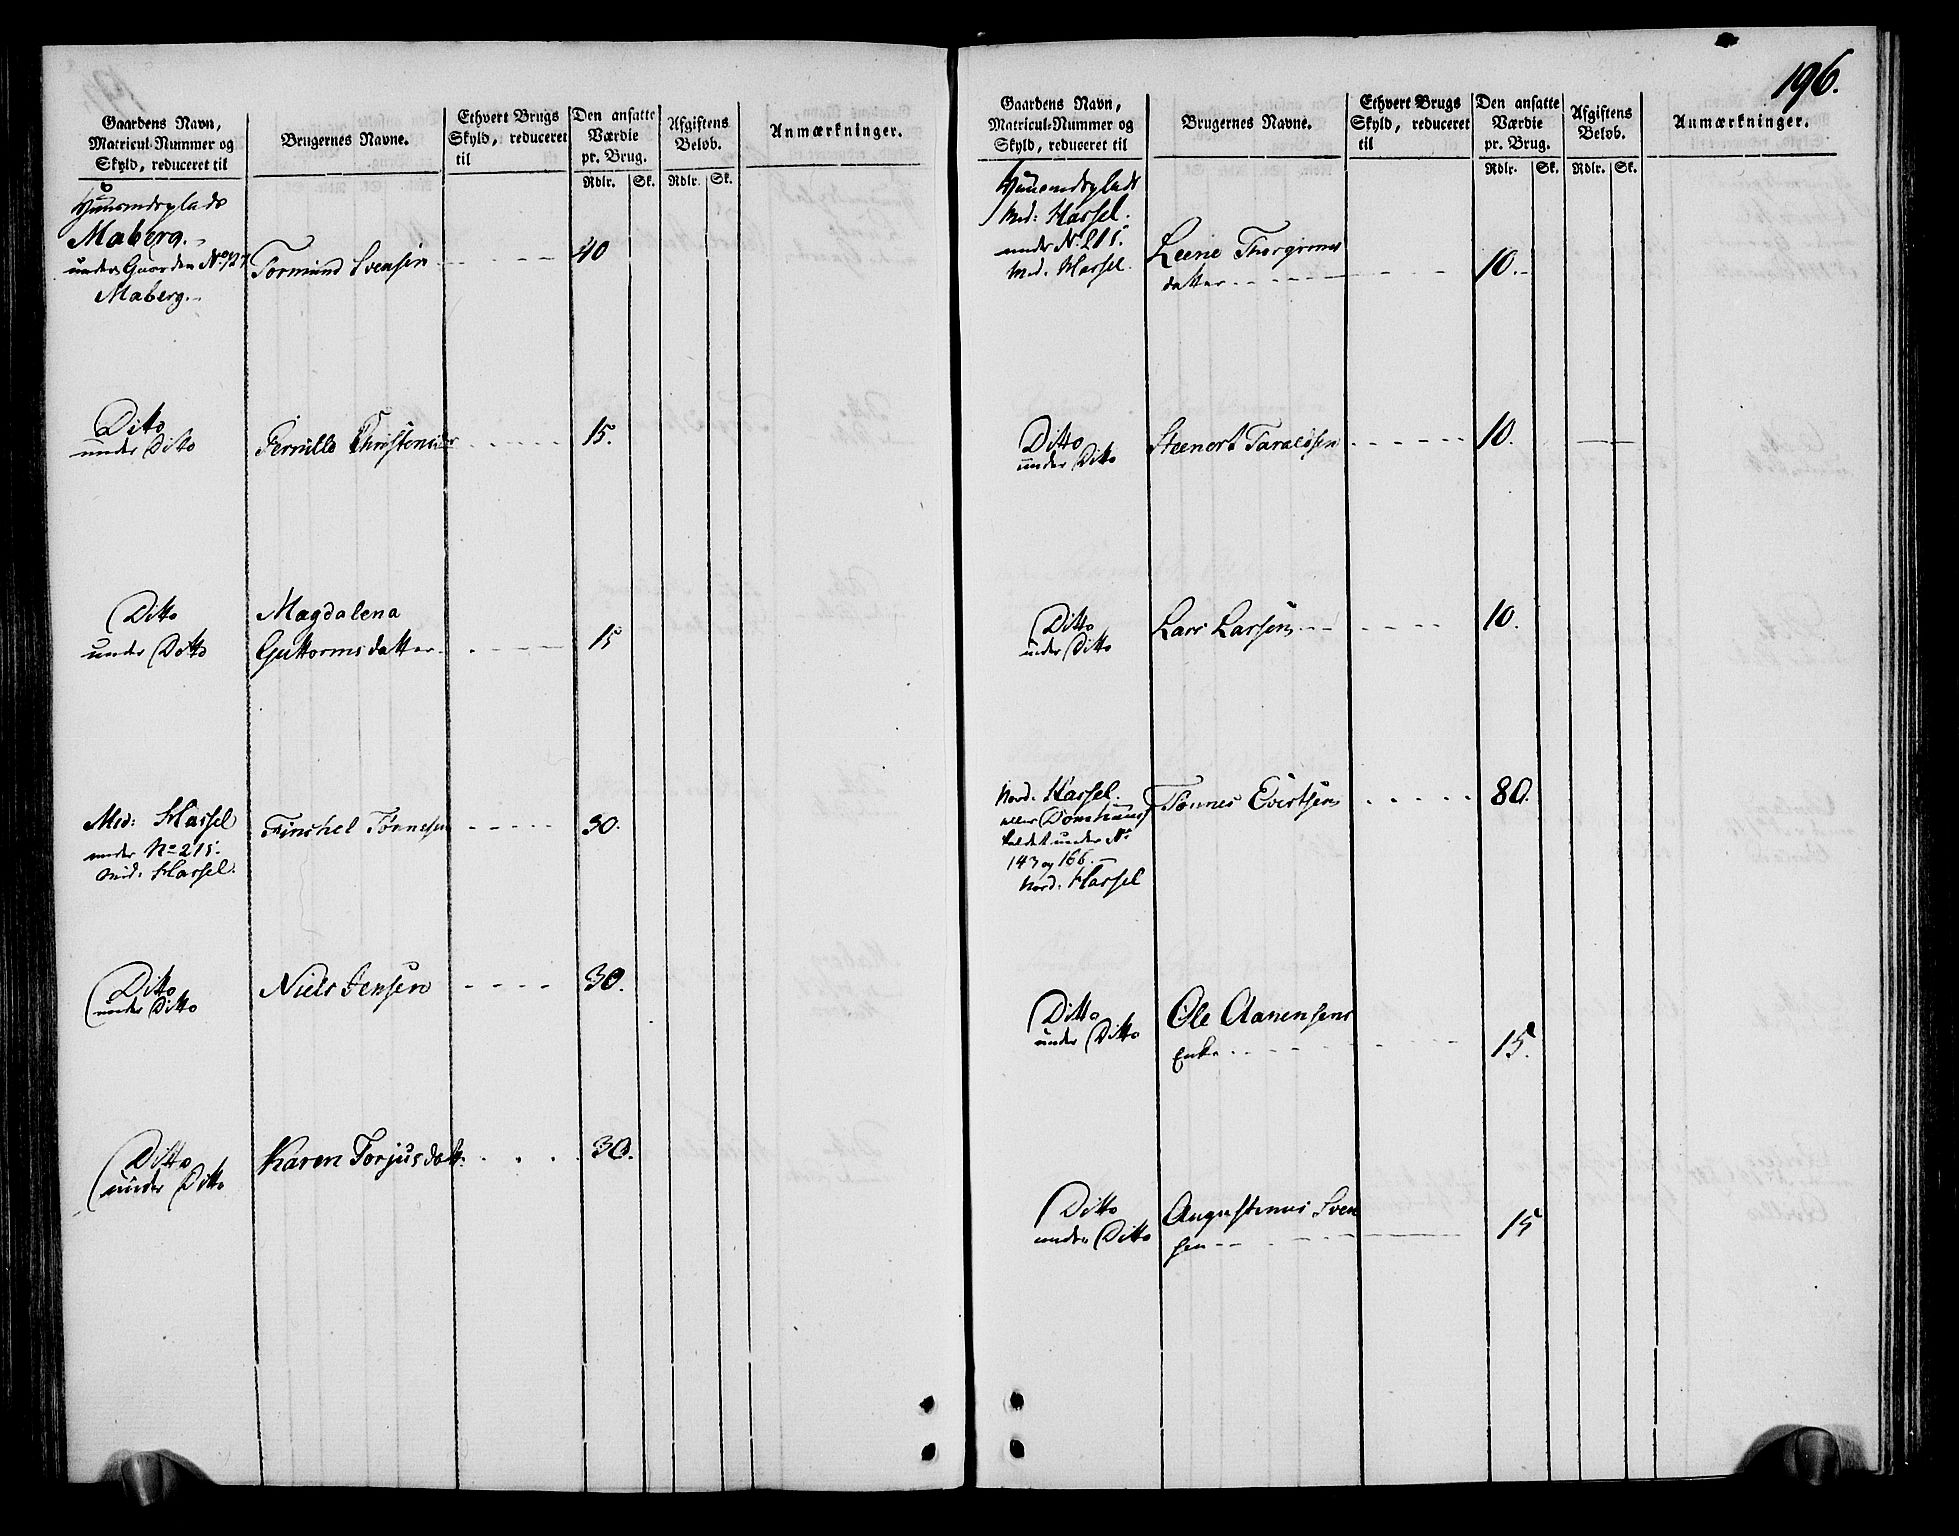 Gaardens Navn,
Matricul-Nummer og
Skyld, reduceret til
Brugernes Navne.
Ethvert Brugs
Skyld, reduceret
til
Den ansatte
Værdie
pr. Brug.
Rdlr. Sk.
Afgiftens
Beløb.
Rdlr. Sk.
Anmærkninger.
Huusmdsplads
Maberg.
under Gaarden No 127
Maberg.
Tormund Svensen
40
Dito
under Ditto
Pernille Christensdr
15.
Ditto
under Ditto
Magdalena
Guttormsdatter
15
Med: Hassel
under No 215.
Mid: Hassel.
Tönnesen
30.
Ditto
under Ditto
Niels Jensen
30.
Ditto
under Ditto
Karen Torjusdatt:
30.
196.
Gaardens Navn,
Matricul-Nummer og
Skyld, reduceret til
Brugernes Navne.
Ethvert Brugs
Skyld, reduceret
til
Den ansatte
Værdie
pr. Brug.
Rdlr. Sk.
Afgiftens
Beløb.
Rdlr. Sk.
Anmærkninger.
Huusmdsplads
Med: Hassel.
under No 215.
Med. Hassel.
Leene
datter
10.
Ditto
under Ditto
Steenort Taraldsen
10.
Ditto
under Ditto
Lars Larsen
10.
Nord. Hassel.
eller
kaldet under No
143 og 166.
Nord. Hassel
Tönnes Evertsen
80.
Ditto
under Ditto
Ole Aanensens
Enke
15.
Ditto
under Ditto
Augustinus Sven
sen
15